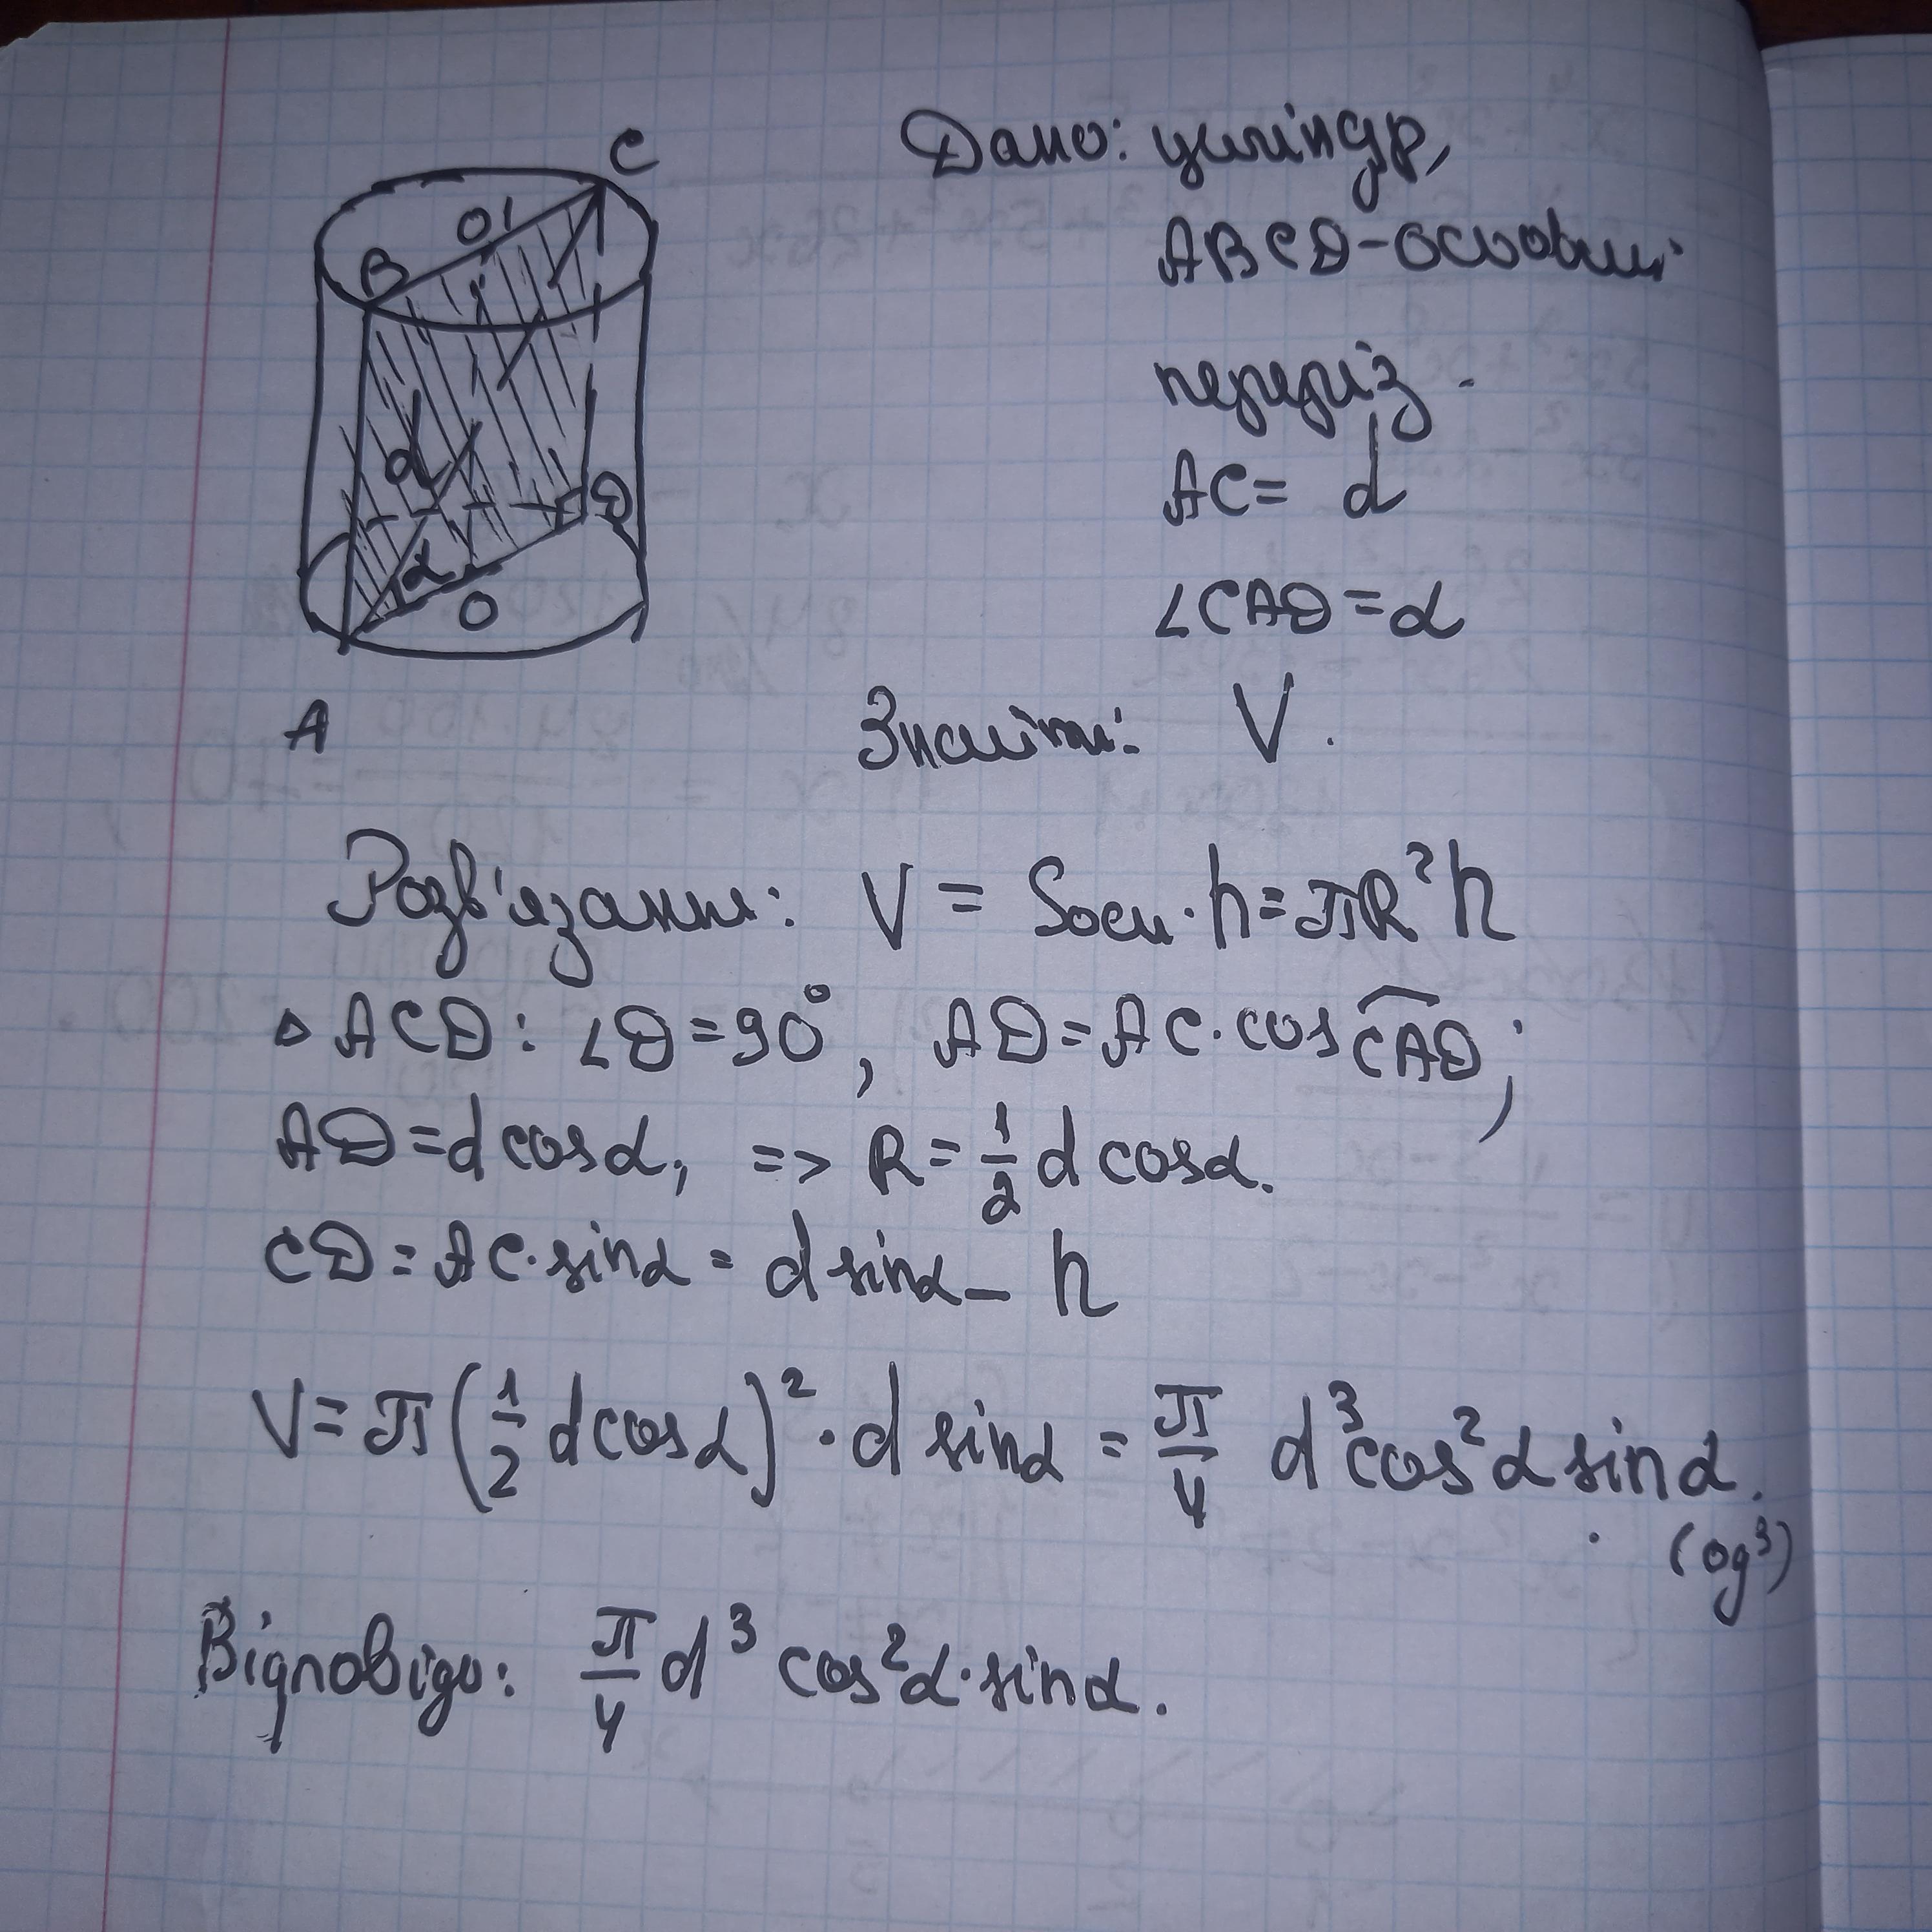 C
O'
B
d
D
α
O
A
Дано: циліндр,
ABCD-осьовий
переріз.
AC= d
∠CAD=α
Знайти: V.
Розв'язання: V = Sосн·h=πR²h
△ACD: ∠D=90°, AD=AC·cos CAD;
AD=d cosα, => R=1/2 d cosα.
CD=AC·sinα= d sinα – h
V=π(1/2 d cosα)²·d sinα = π/4 d³cos²α sinα.
(од³)
Відповідь: π/4 d³ cos²α·sinα.